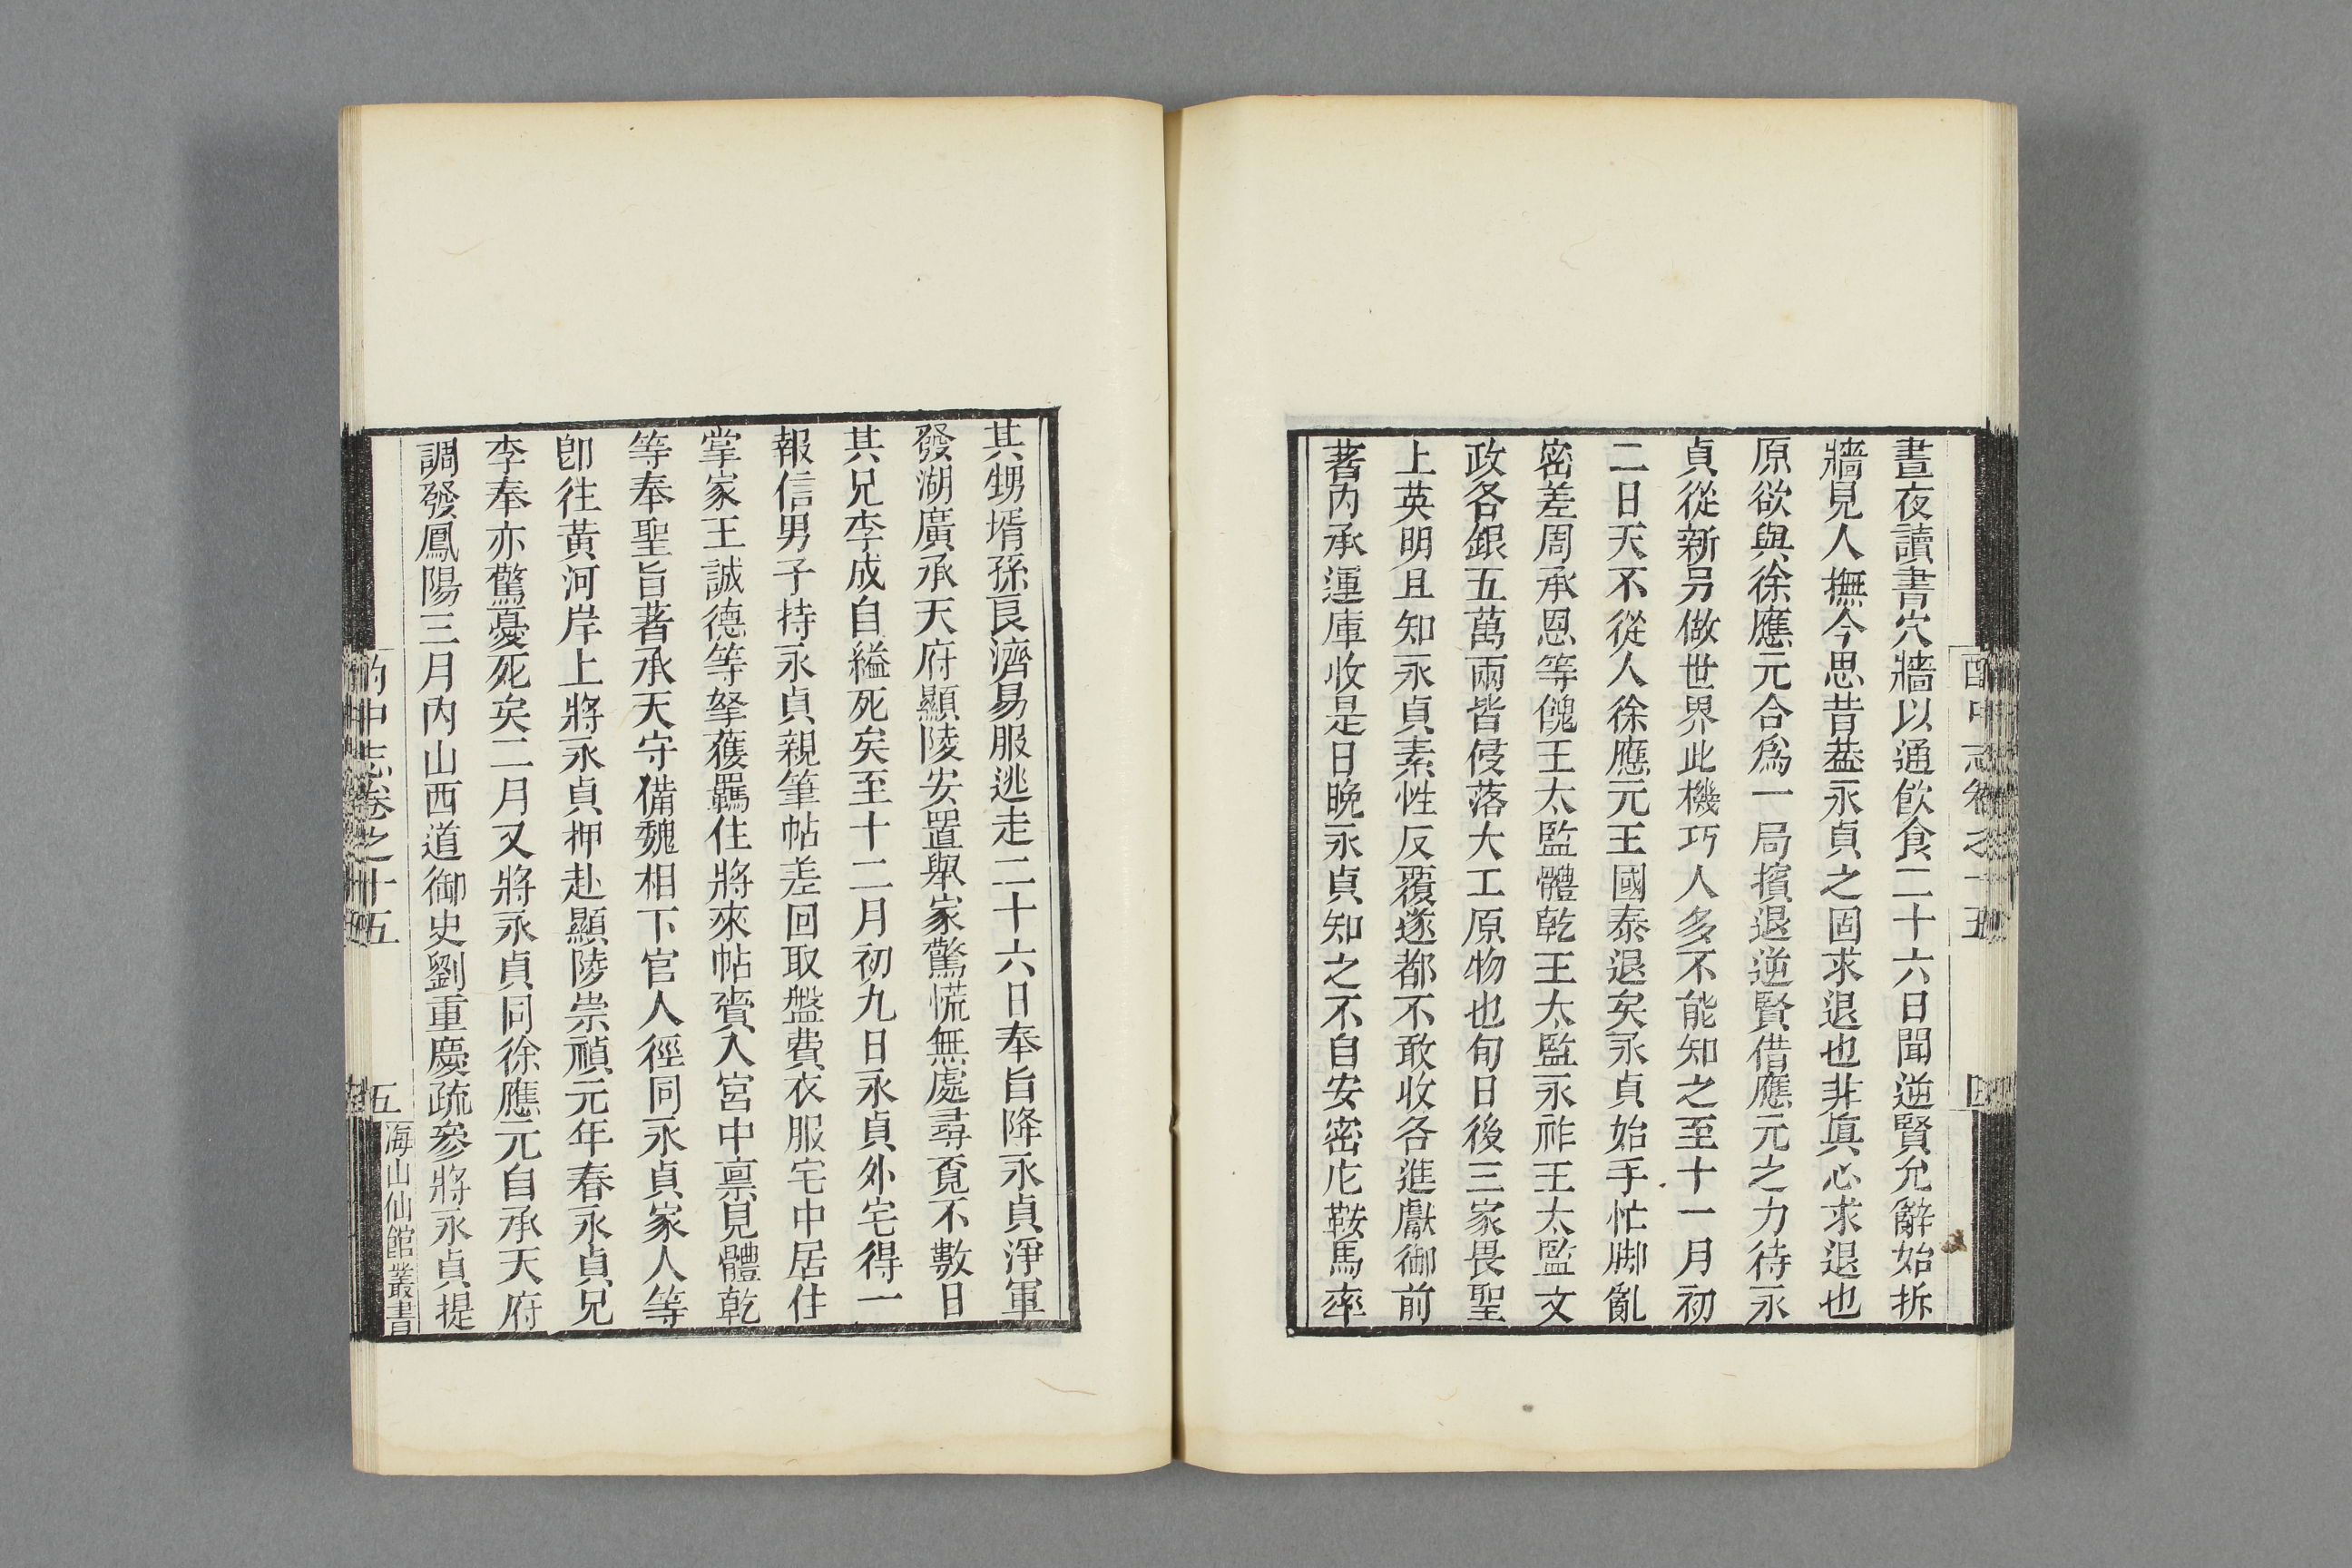 晝夜讀書穴牆以通飮食二十六日聞逆賢允辭始拆
牆見人撫今思昔葢永貞之固求退也非眞心求退也
原欲與徐應元合爲一局擯退逆賢借應元之力待永
貞從新另做世界此機巧人多不能知之至十一月初
二日天不從人徐應元王國泰退矣永貞始手忙脚亂
密差周承恩等餽王太監體乾王太監永祚王太監文
政各銀五萬兩皆侵落大工原物也旬日後三家畏聖
上英明且知永貞素性反覆遂都不敢收各進獻御前
著內承運庫收是日晚永貞知之不自安密庀鞍馬率
酌中志卷之十五
四
其甥壻孫良濟易服逃走二十六日奉旨降永貞淨軍
發湖廣承天府顯陵安置舉家驚慌無處尋覓不數日
其兄李成自縊死矣至十二月初九日永貞外宅得一
報信男子持永貞親筆帖差回取盤費衣服宅中居住
掌家王誠德等拏獲羈住將來帖賫入宮中禀見體乾
等奉聖旨著承天守備魏相下官人徑同永貞家人等
卽往黃河岸上將永貞押赴顯陵崇禎元年春永貞兄
李奉亦驚憂死矣二月又將永貞同徐應元自承天府
調發鳳陽三月內山西道御史劉重慶疏參將永貞提
酌中志卷之十五
五
海山仙館叢書